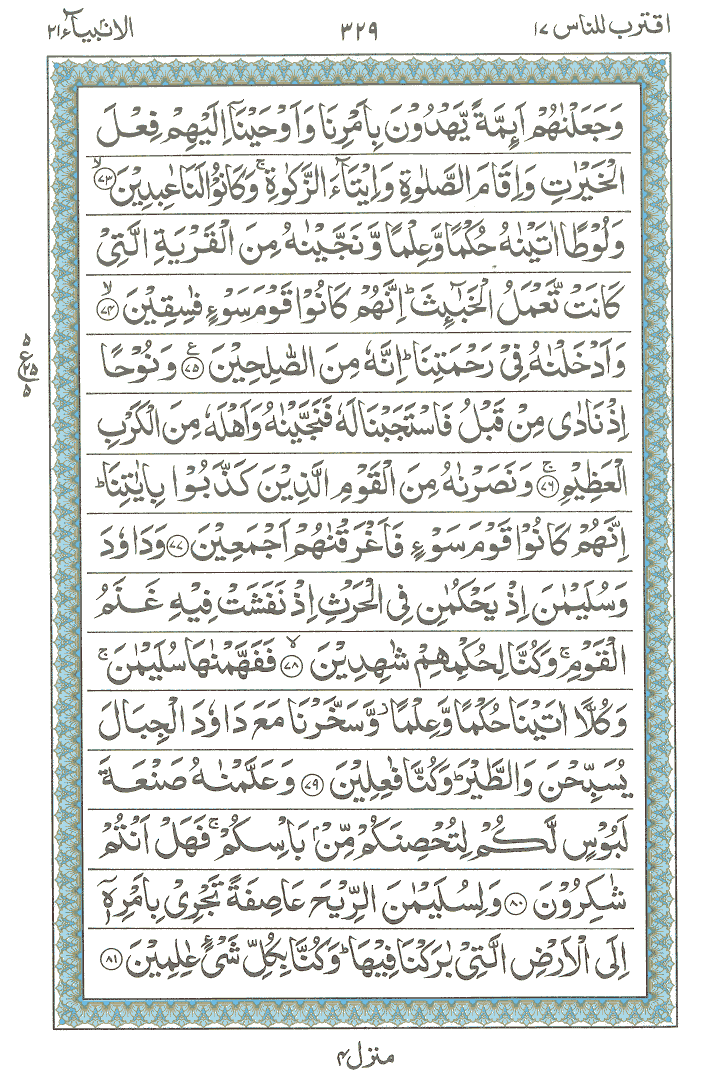 اقترب للناس ۱۷
۳۲۹
الانبیآء ۲۱
وَجَعَلْنٰهُمْ اَىِٕمَّةً یَّهْدُوْنَ بِاَمْرِنَا وَاَوْحَیْنَاۤ اِلَیْهِمْ فِعْلَ
الْخَیْرٰتِ وَاِقَامَ الصَّلٰوةِ وَاِیْتَآءَ الزَّكٰوةِ ۚ وَكَانُوْا لَنَا عٰبِدِیْنَ ۙ﴿۷۳﴾
وَلُوْطًا اٰتَیْنٰهُ حُكْمًا وَّعِلْمًا وَّنَجَّیْنٰهُ مِنَ الْقَرْیَةِ الَّتِیْ
كَانَتْ تَّعْمَلُ الْخَبٰٓىِٕثَ ؕ اِنَّهُمْ كَانُوْا قَوْمَ سَوْءٍ فٰسِقِیْنَ ۙ﴿۷۴﴾
وَاَدْخَلْنٰهُ فِیْ رَحْمَتِنَا ؕ اِنَّهٗ مِنَ الصّٰلِحِیْنَ ﴿۷۵﴾ع وَنُوْحًا
اِذْ نَادٰی مِنْ قَبْلُ فَاسْتَجَبْنَا لَهٗ فَنَجَّیْنٰهُ وَاَهْلَهٗ مِنَ الْكَرْبِ
الْعَظِیْمِ ۚ﴿۷۶﴾ وَنَصَرْنٰهُ مِنَ الْقَوْمِ الَّذِیْنَ كَذَّبُوْا بِاٰیٰتِنَا ؕ
اِنَّهُمْ كَانُوْا قَوْمَ سَوْءٍ فَاَغْرَقْنٰهُمْ اَجْمَعِیْنَ ﴿۷۷﴾ وَدَاوٗدَ
وَسُلَیْمٰنَ اِذْ یَحْكُمٰنِ فِی الْحَرْثِ اِذْ نَفَشَتْ فِیْهِ غَنَمُ
الْقَوْمِ ۚ وَكُنَّا لِحُكْمِهِمْ شٰهِدِیْنَ ۙ﴿۷۸﴾ فَفَهَّمْنٰهَا سُلَیْمٰنَ ۚ
وَكُلًّا اٰتَیْنَا حُكْمًا وَّعِلْمًا ؗ وَّسَخَّرْنَا مَعَ دَاوٗدَ الْجِبَالَ
یُسَبِّحْنَ وَالطَّیْرَ ؕ وَكُنَّا فٰعِلِیْنَ ﴿۷۹﴾ وَعَلَّمْنٰهُ صَنْعَةَ
لَبُوْسٍ لَّكُمْ لِتُحْصِنَكُمْ مِّنْۢ بَاْسِكُمْ ۚ فَهَلْ اَنْتُمْ
شٰكِرُوْنَ ﴿۸۰﴾ وَلِسُلَیْمٰنَ الرِّیْحَ عَاصِفَةً تَجْرِیْ بِاَمْرِهٖۤ
اِلَی الْاَرْضِ الَّتِیْ بٰرَكْنَا فِیْهَا ؕ وَكُنَّا بِكُلِّ شَیْءٍ عٰلِمِیْنَ ﴿۸۱﴾
۵
ع ۲۵
۵
منزل ۴